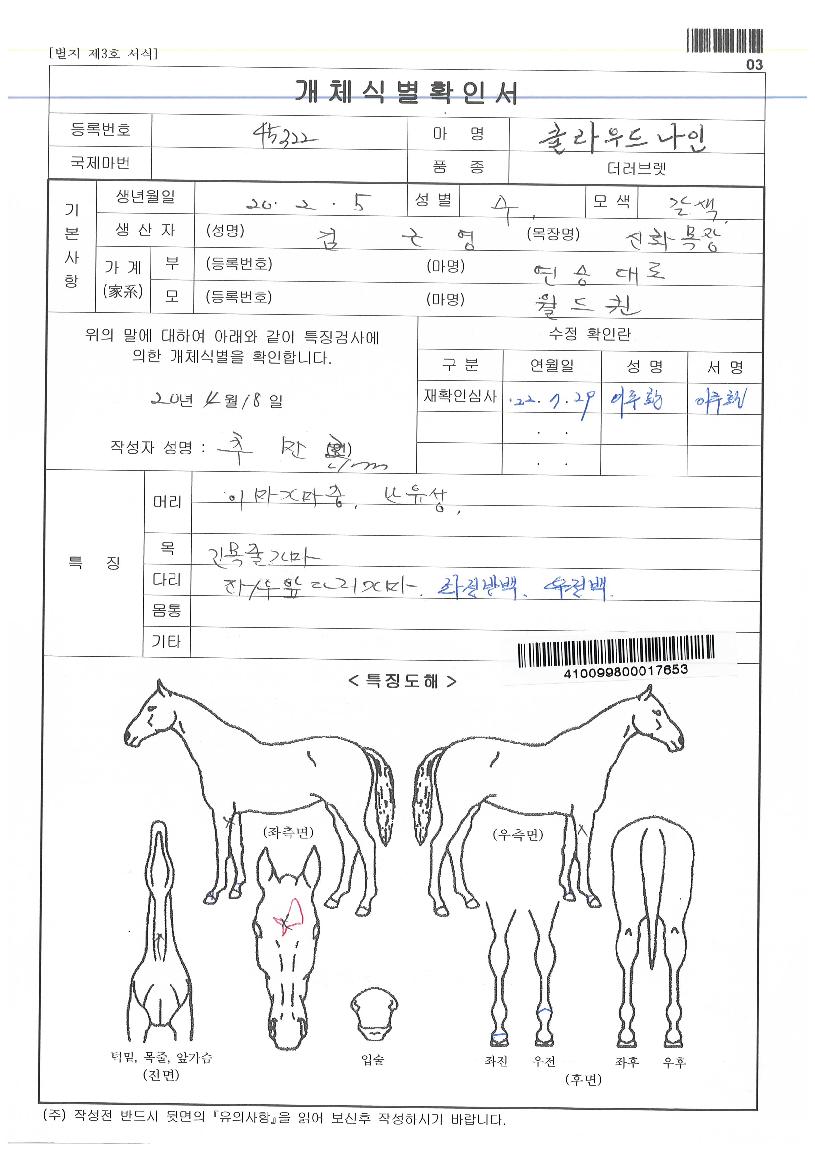 [별지 제3호 서식]
03
개체식별확인서
등록번호 45322 마 명 클라우드나인
국제마번 품 종 더러브렛
기본사항
생년월일 20. 2. 5 성별 수. 모색 갈색.
생산자 (성명) 김 근 영 (목장명) 진화목장
가계 (家系) 부 (등록번호) (마명) 연승대로
모 (등록번호) (마명) 월드퀸
위의 말에 대하여 아래와 같이 특징검사에
의한 개체식별을 확인합니다.
20년 4월 18일
작성자 성명 : 추
수정 확인란
구 분 연월일 성 명 서 명
재확인심사 .22. 7. 29
. .
. .
특 징
머리 이마가마중, 난유성.
목 긴목줄가마
다리 좌/우앞다리가마. 좌전반백. 우전백.
몸통
기타
410099800017653
< 특징도해 >
(좌측면) (우측면)
턱밑, 목줄, 앞가슴 입술 좌전 우전 좌후 우후
(전면) (후면)
(주) 작성전 반드시 뒷면의 『유의사항』을 읽어 보신후 작성하시기 바랍니다.